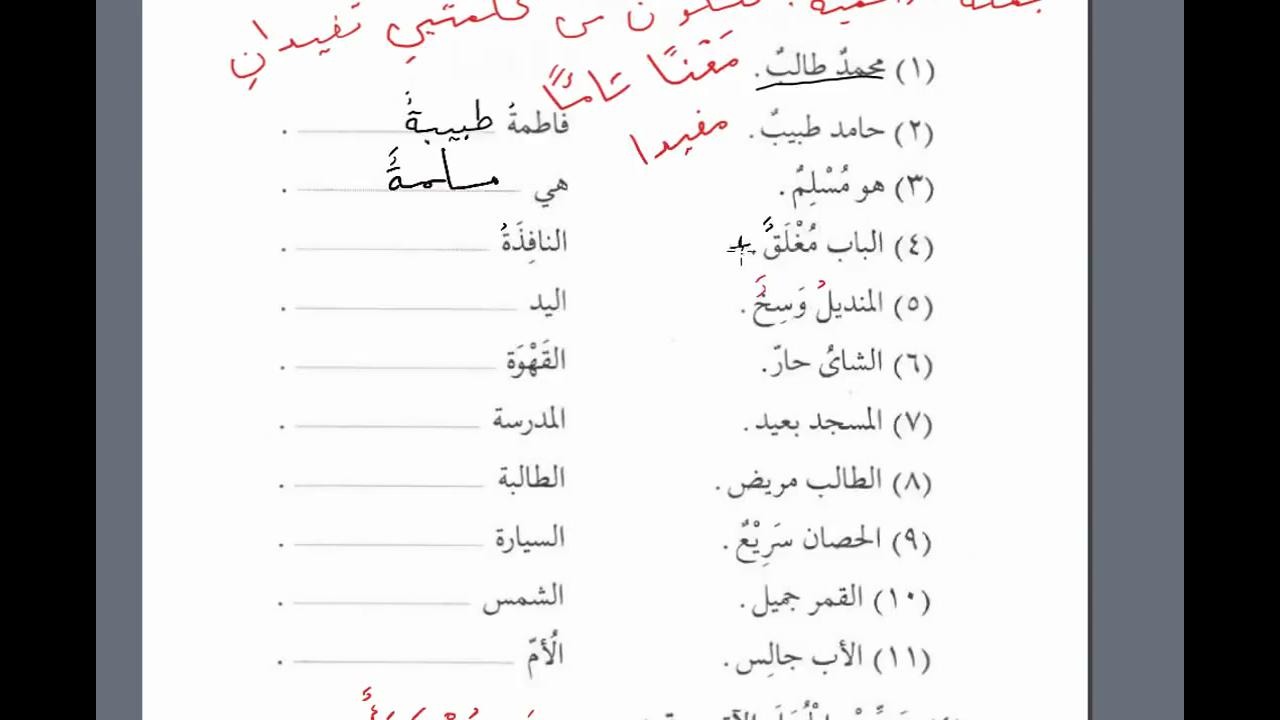 جملة تتكون من كلمتين تفيدانِ
(١) محمدٌ طالبٌ.
مَعْنًا تامًّا
مفيدا
(٢) حامد طبيبٌ. فاطمةُ طبيبةٌ .
(٣) هو مُسْلِمٌ. هي مسلمةٌ .
(٤) الباب مُغْلَقٌ النافِذَةُ .
(٥) المنديلُ وَسِخٌ. اليد .
(٦) الشائُ حارّ. القَهْوَة .
(٧) المسجد بعيد. المدرسة .
(٨) الطالب مريض. الطالبة .
(٩) الحصان سَرِيْعٌ. السيارة .
(١٠) القمر جميل. الشمس .
(١١) الأب جالِس. الأُمّ .